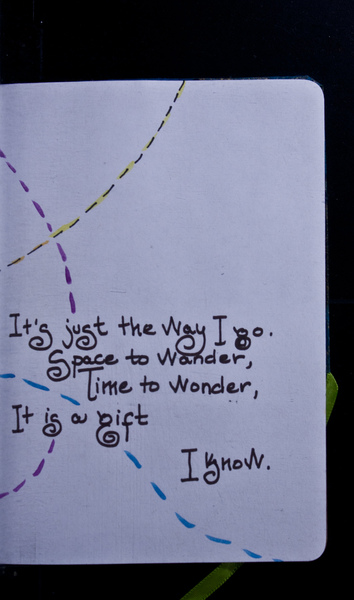 It's just the Way I go.
Space to Wander,
Time to Wonder,
It is a gift
I know.